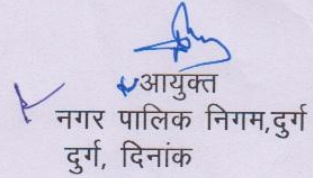 आयुक्त
नगर पालिक निगम,दुर्ग
दुर्ग, दिनांक